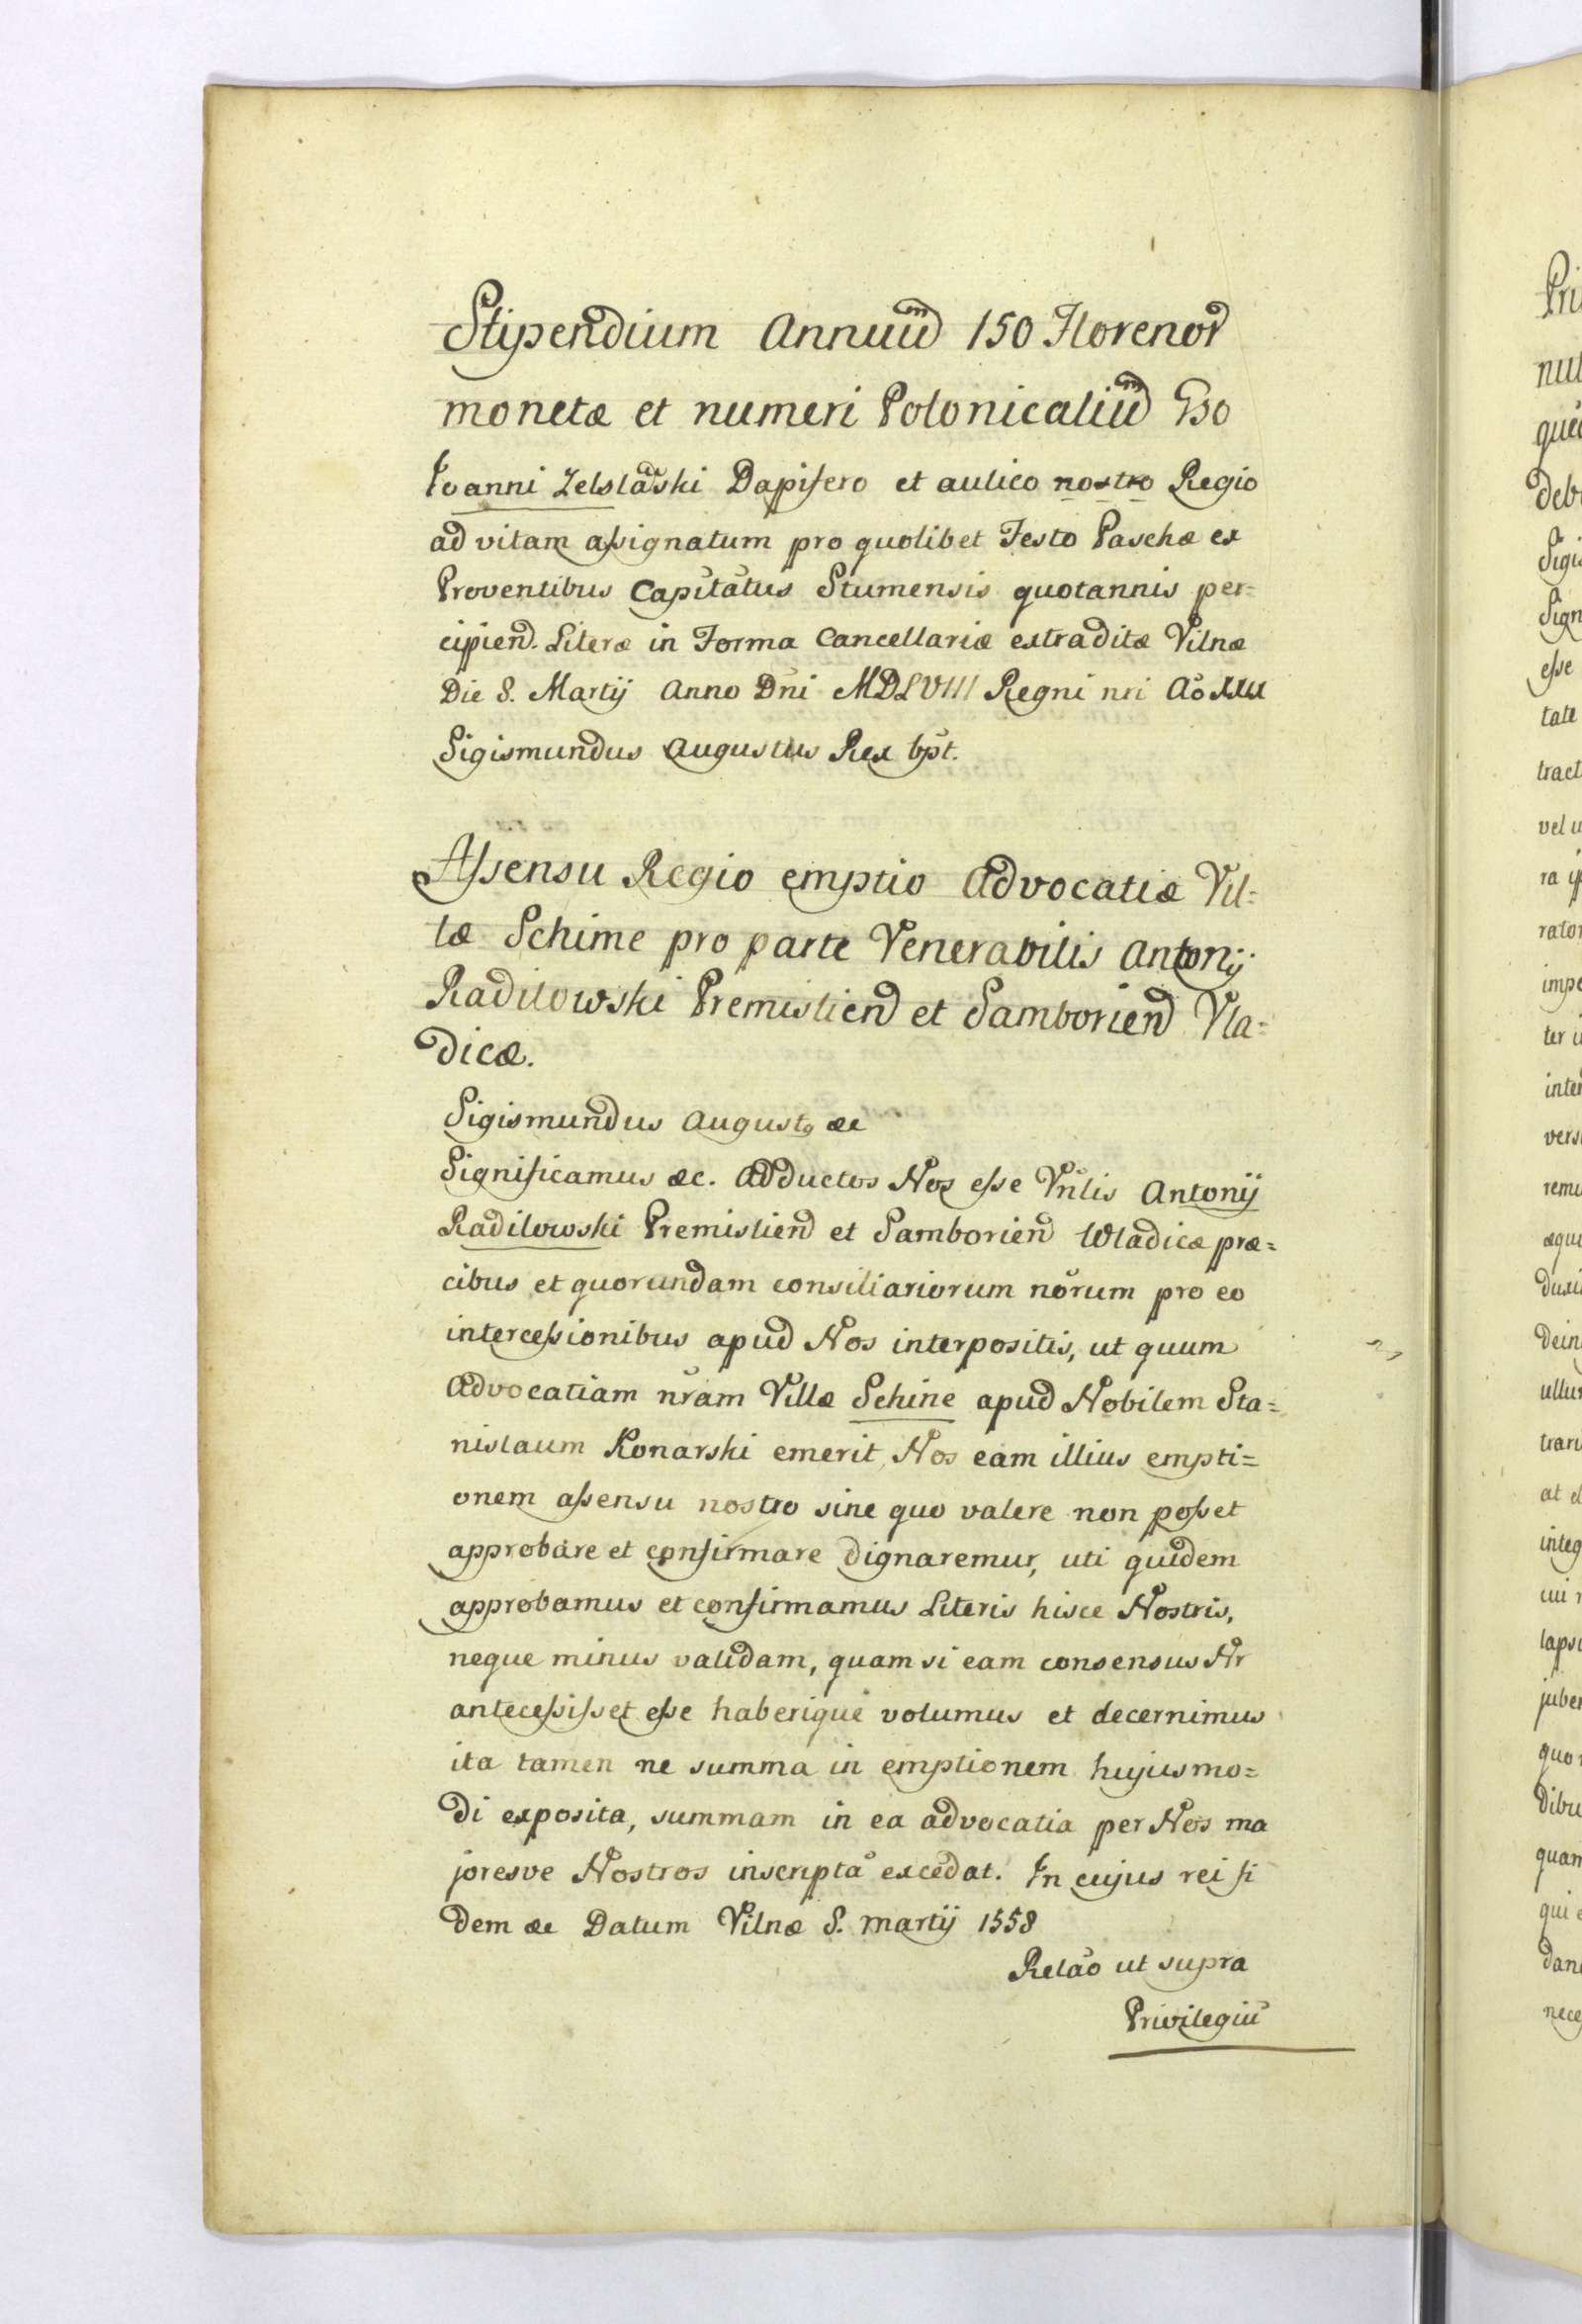 Stipendium Annuum 150 Florenor
monetæ et numeri Polonicalium Gso
Joanni Zelslaski Dapifero et aulico nostro Regio
ad vitam assignatum pro quolibet Festo Paschæ ex
Proventibus Capitatus Stumensis quotannis per=
cipiend. Literæ in Forma Cancellariæ extraditæ Vilnæ
Die 8. Martij Anno Dni MDLVIII Regni nri Ao
Sigismundus Augustus Rex spt.
Assensu Regio emptio Advocatiæ Vil=
læ Schime pro parte Venerabilis Antonij
Radilowski Premislien et Samborien Vla=
dicæ.
Sigismundus August9 æc
Significamus æc. Adductos Nos esse Vnlis Antonij
Radilowski Premislien et Samborien Wladicæ præ=
cibus et quorundam consiliariorum norum pro eo
intercessionibus apud Nos interpositis, ut quum
Advocatiam nram Villæ Schine apud Nobilem Sta=
nislaum Konarski emerit, Nos eam illius empti=
onem assensu nostro sine quo valere non posset
approbare et confirmare dignaremur, uti quidem
approbamus et confirmamus Literis hisce Nostris,
neque minus validam, quam si eam consensus Nr
antecessisset esse haberique volumus et decernimus
ita tamen ne summa in emptionem hujusmo=
di exposita, summam in ea advocatia per Nos ma
joresve Nostros inscripta excedat. In cujus rei fi
dem æc Datum Vilnæ 8. martij 1558
Relao ut supra
Privilegiu